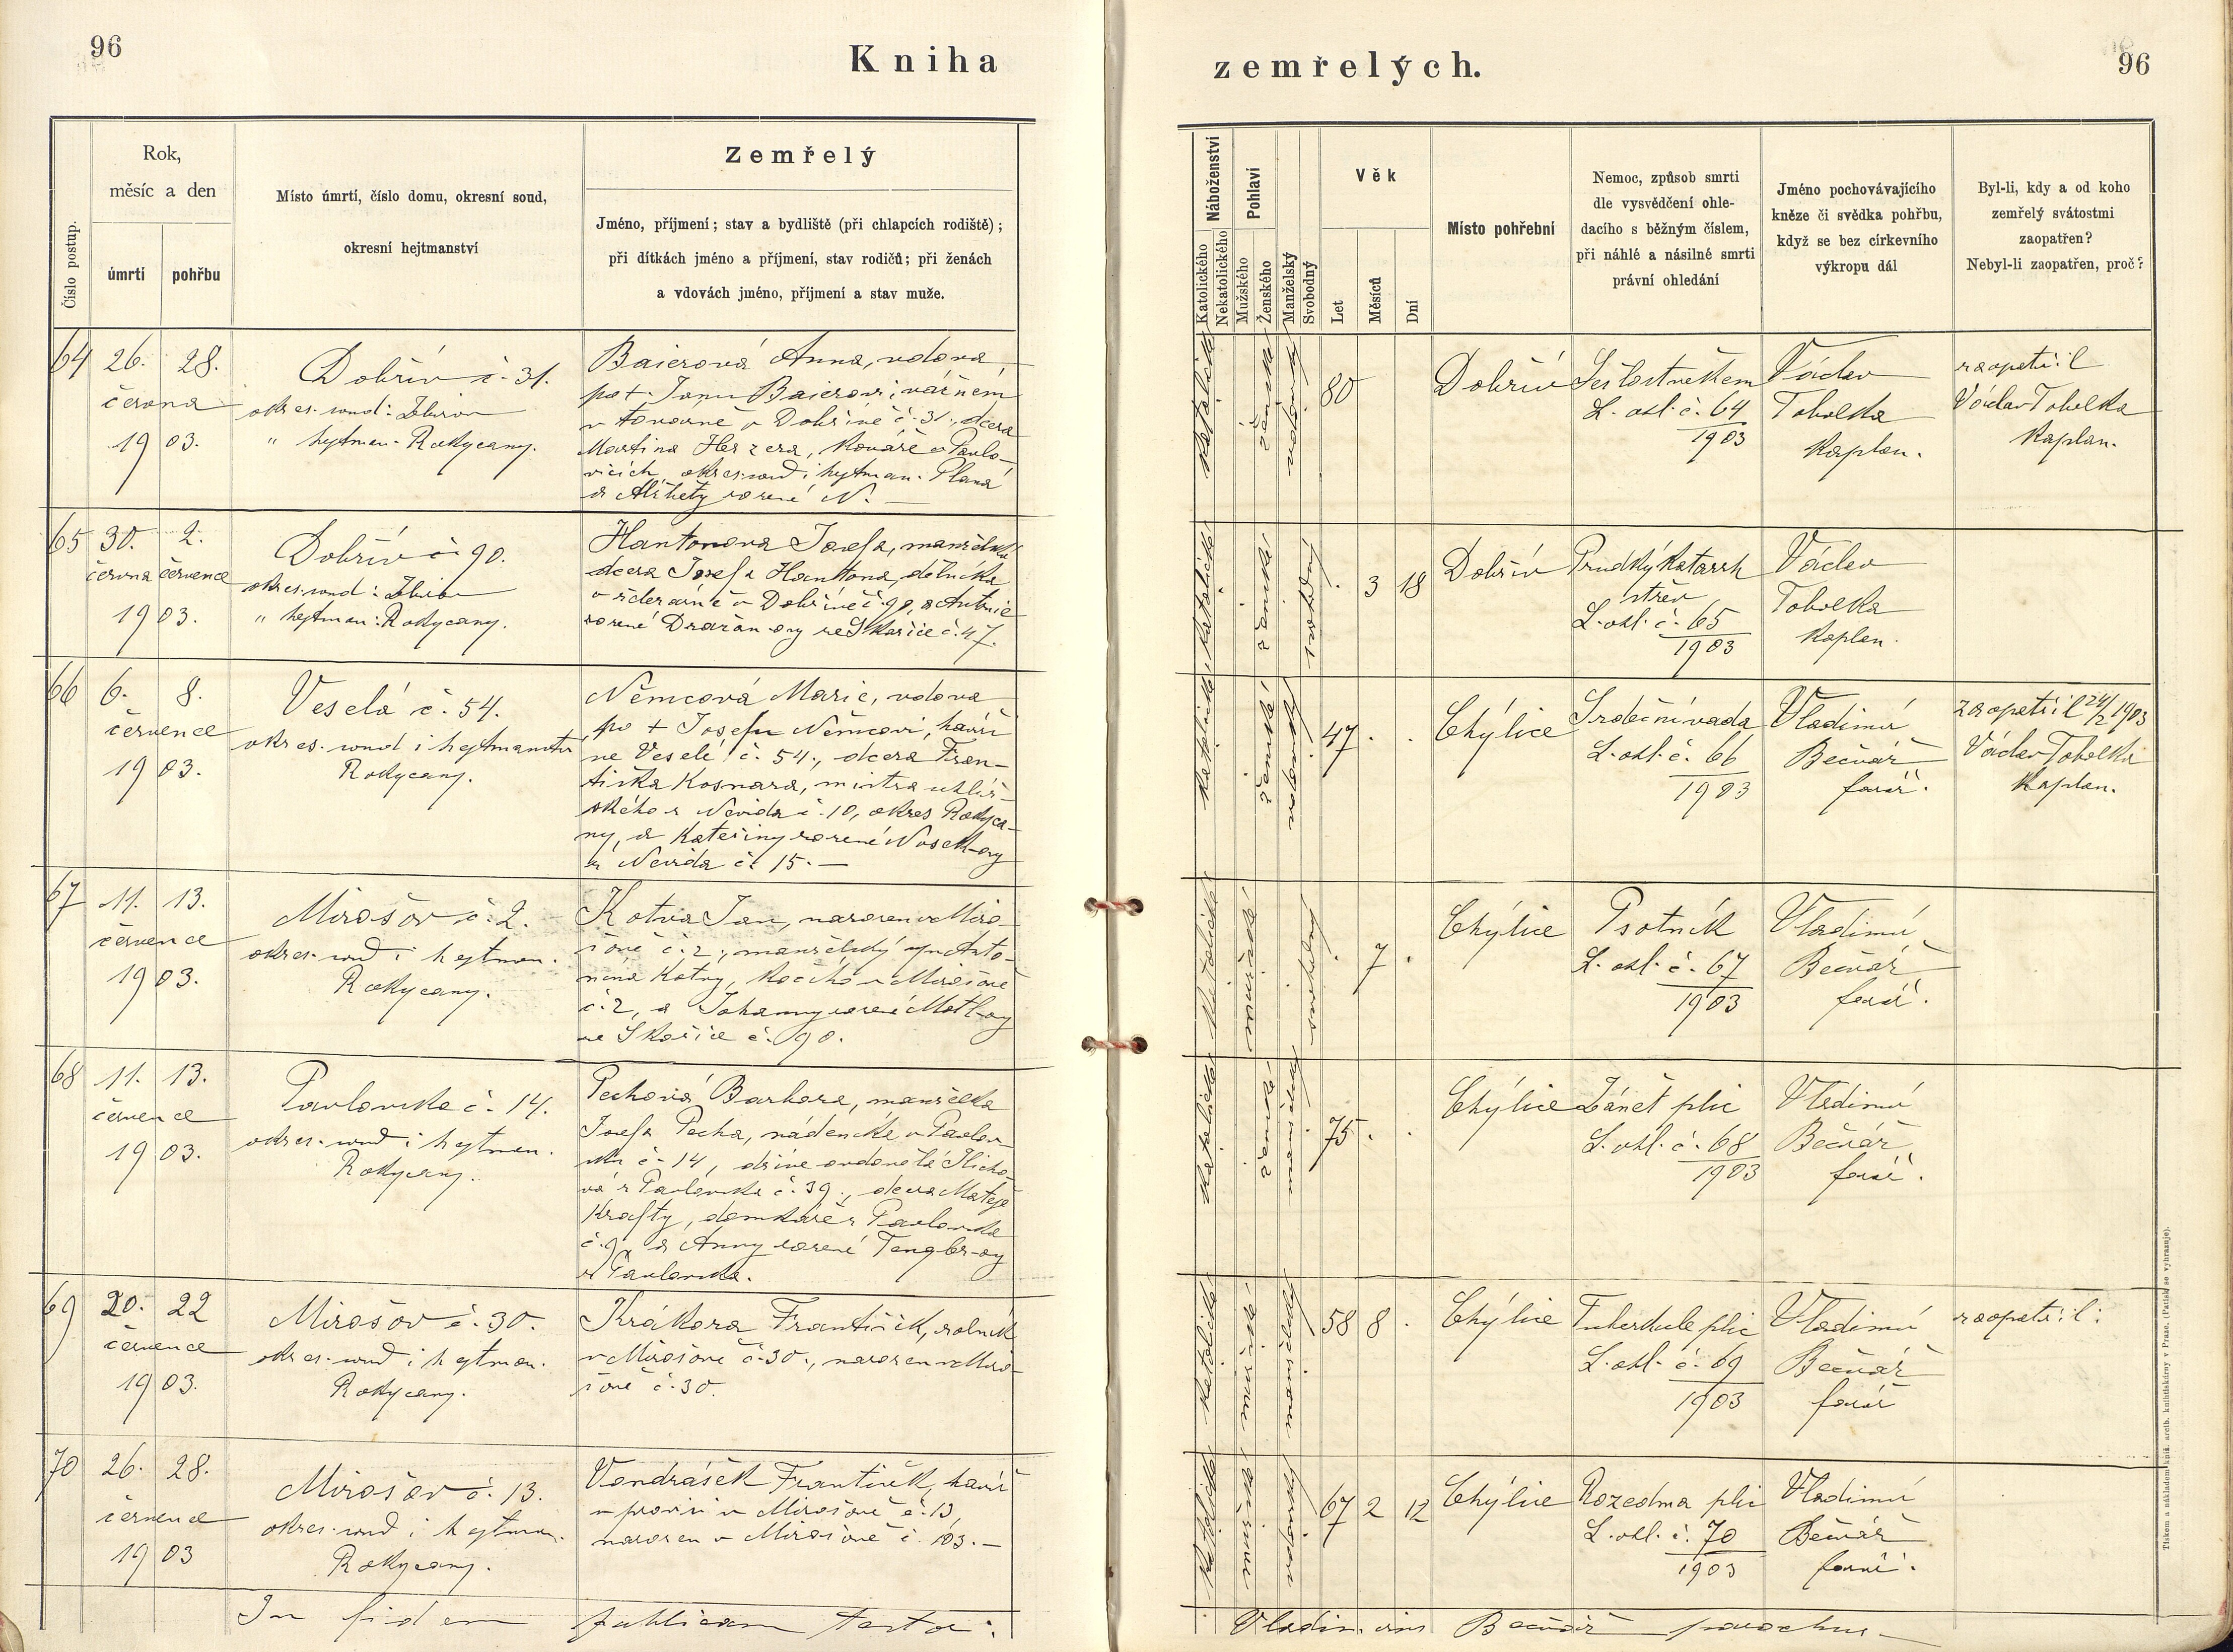 96
Kniha
Rok,
měsíc a den
Číslo postup.
úmrtí
pohřbu
Místo úmrtí, číslo domu, okresní soud,
okresní hejtmanství
Zemřelý
Jméno, příjmení; stav a bydliště (při chlapcích rodiště);
při dítkách jméno a příjmení, stav rodičů; při ženách
a vdovách jméno, příjmení a stav muže.
64 26. 28.
června
1903.
Dobřív č. 31.
okres. soud: Zbiroh
" hejtman. Rokycany.
Baierová Anna, vdova
po + Janu Baierovi
v továrně v Dobřívě č. 31., dcera
Martina Herzera, kováře v Pavlo-
vicích, okres. soud i hejtman. Planá
a Alžběty rozené N. —
65 30. 2.
června července
1903.
Dobřív č. 90.
okres. soud: Zbiroh
" hejtman: Rokycany.
Hantonova Josefa, manželská
dcera Josefa Hantona, dělníka
v Dobřívě č. 90, a Antonie
rozené ze Skořice č. 47.
66 6. 8.
července
1903.
Veselá č. 54.
okres. soud i hejtmanstv
Rokycany.
Němcová Marie, vdova
po + Josefu Němcovi, havíři
ve Veselé č. 54., dcera Fran-
tiška Kosnara, mistra uhlíř-
ského z Nevida č. 10, okres Rokyca-
ny, a Kateřiny rozené Nosek-ovy
z Nevida č. 15. —
67 11. 13.
července
1903.
Mirošov č. 2.
okres. soud i hejtman.
Rokycany.
Kotva Jan, narozen v Miro-
šově č. 2., manželský syn Anto-
nína Kotvy, kočího v Mirošově
č. 2, a Johanny rozené Motl-ovy
ze Skořice č. 90.
68 11. 13.
července
1903.
Pavlovsko č. 14.
okres. soud i hejtman.
Rokycany.
Pechová Barbora, manželka
Josefa Pecha, nádeníka v Pavlov-
sku č. 14, dříve ovdovělá
vá z Pavlovska č. 39., dcera Matěje
Krafty, domkáře z Pavlovska
a Anny rozené Tengler-ovy
z Pavlovska.
69 20. 22
července
1903.
Mirošov č. 30.
okres. soud i hejtman.
Rokycany.
Krákora František, rolník
v Mirošově č. 30., narozen v Miro-
šově č. 30.
70 26. 28.
července
1903
Mirošov č. 13.
okres. soud i hejtman.
Rokycany.
Vondrášek František, havíř
v Mirošově č. 13,
narozen v Mirošově č. 103. —
In fidem publicam testor:
zemřelých.
96
Náboženství
Katolického
Nekatolického
Pohlaví
Mužského
Ženského
Manželský
Svobodný
Věk
Let
Měsíců
Dní
Místo pohřební
Nemoc, způsob smrti
dle vysvědčení ohle-
dacího s běžným číslem,
při náhlé a násilné smrti
právní ohledání
Jméno pochovávajícího
kněze či svědka pohřbu,
když se bez církevního
výkropu dál
Byl-li, kdy a od koho
zemřelý svátostmi
zaopatřen?
Nebyl-li zaopatřen, proč?
katolické ženské vdovský 80
Dobřív
Sešlost věkem
L. ohl. č. 64
1903
Václav
Tobolka
kaplan.
zaopatřil
Václav Tobolka
kaplan.
katolické ženské svobodný . 3 18
Dobřív
Prudký katarrh
střev
L. ohl. č. 65
1903
Václav
Tobolka
kaplan.
katolické ženské vdovský 47 . .
Chýlice
Srdeční vada
L. ohl. č. 66
1903
Vladimír
Bečvář
farář.
zaopatřil 24/2 1903
Václav Tobolka
kaplan.
katolické mužské svobodný . 7 .
Chýlice
Psotník
L. ohl. č. 67
1903
Vladimír
Bečvář
farář.
katolické ženské manželský 75 . .
Chýlice
Zánět plic
L. ohl. č. 68
1903
Vladimír
Bečvář
farář.
katolické mužské manželský 58 8 .
Chýlice
Tuberkule plic
L. ohl. č. 69
1903
Vladimír
Bečvář
farář
zaopatřil:
katolické mužské vdovský 67 2 12
Chýlice
Rozedma plic
L. ohl. č. 70
1903
Vladimír
Bečvář
farář.
Vladimirus Bečvář parochus
Tiskem a nákladem kníž. arcib. knihtiskárny v Praze. (Patisk se vyhrazuje).